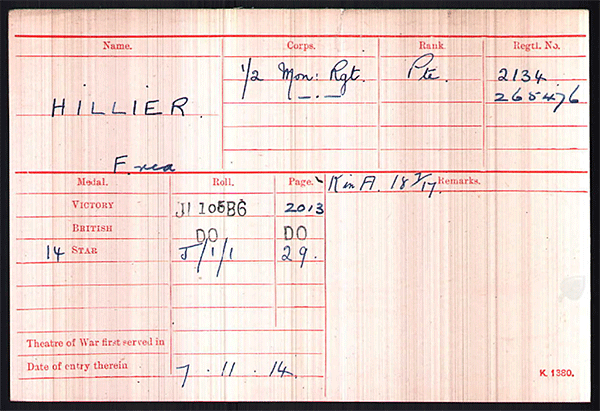 Name. Corps. Rank. Regtl. No.
HILLIER. 1/2 Mon: Rgt. Pte. 2134
—.— 265476
Medal. Roll. Page. K in A. 18 17. Remarks.
VICTORY J1 105B6 2013
BRITISH DO DO
14 STAR J/1/1 29.
Theatre of War first served in
Date of entry therein 7 . 11 . 14.
K. 1380.